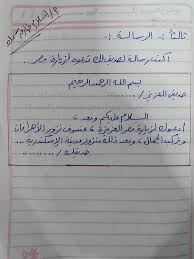 ثالثاً :- الرسالة :-
اكتب رسالة لصديقك تدعوه لزيارة مصر
بسم الله الرحمن الرحيم
صديقي العزيز / ........
السلام عليكم وبعد ،
أدعوك لزيارة مصر العزيزة ، فسوف نزور الأهرامات
ونركب الجمال ، وبعد ذلك سنزور مدينة الإسكندرية ...
صديقك / ........